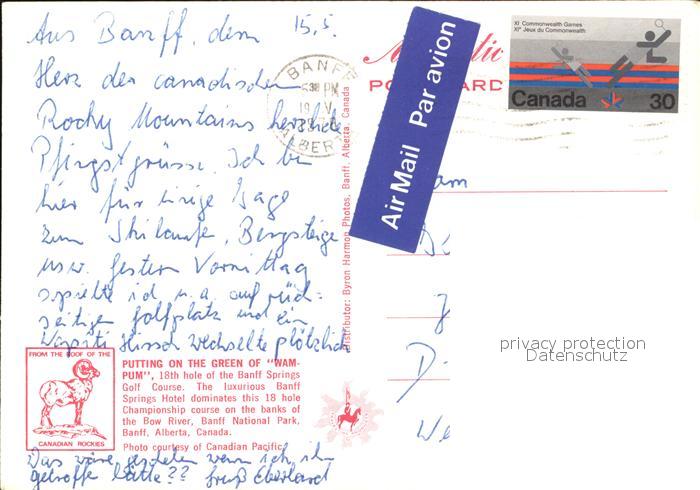 Aus Banff, dem 15,5.
Herz der canadischen
Rocky Mountains herzliche
Pfingstgrüsse. Ich bin
hier für einige Tage
zum Skilaufe, Bergsteige
usw. gestern Vormittag
spielte ich u. a. auf rück-
seitigen Golfplatz und ein
Wapiti Hirsch wechselte plötzlich
FROM THE ROOF OF THE
CANADIAN ROCKIES
PUTTING ON THE GREEN OF "WAM-
PUM", 18th hole of the Banff Springs
Golf Course. The luxurious Banff
Springs Hotel dominates this 18 hole
Championship course on the banks of
the Bow River, Banff National Park,
Banff, Alberta, Canada.
Photo courtesy of Canadian Pacific
Das wäre wenn ich ihn
getroffe hätte?? Gruß Eberhard
Distributor: Byron Harmon Photos, Banff, Alberta, Canada
BANFF
PM
19 V
ALBERTA
Air Mail Par avion
XI Commonwealth Games
XIes Jeux du Commonwealth
Canada 30
privacy protection
Datenschutz
We